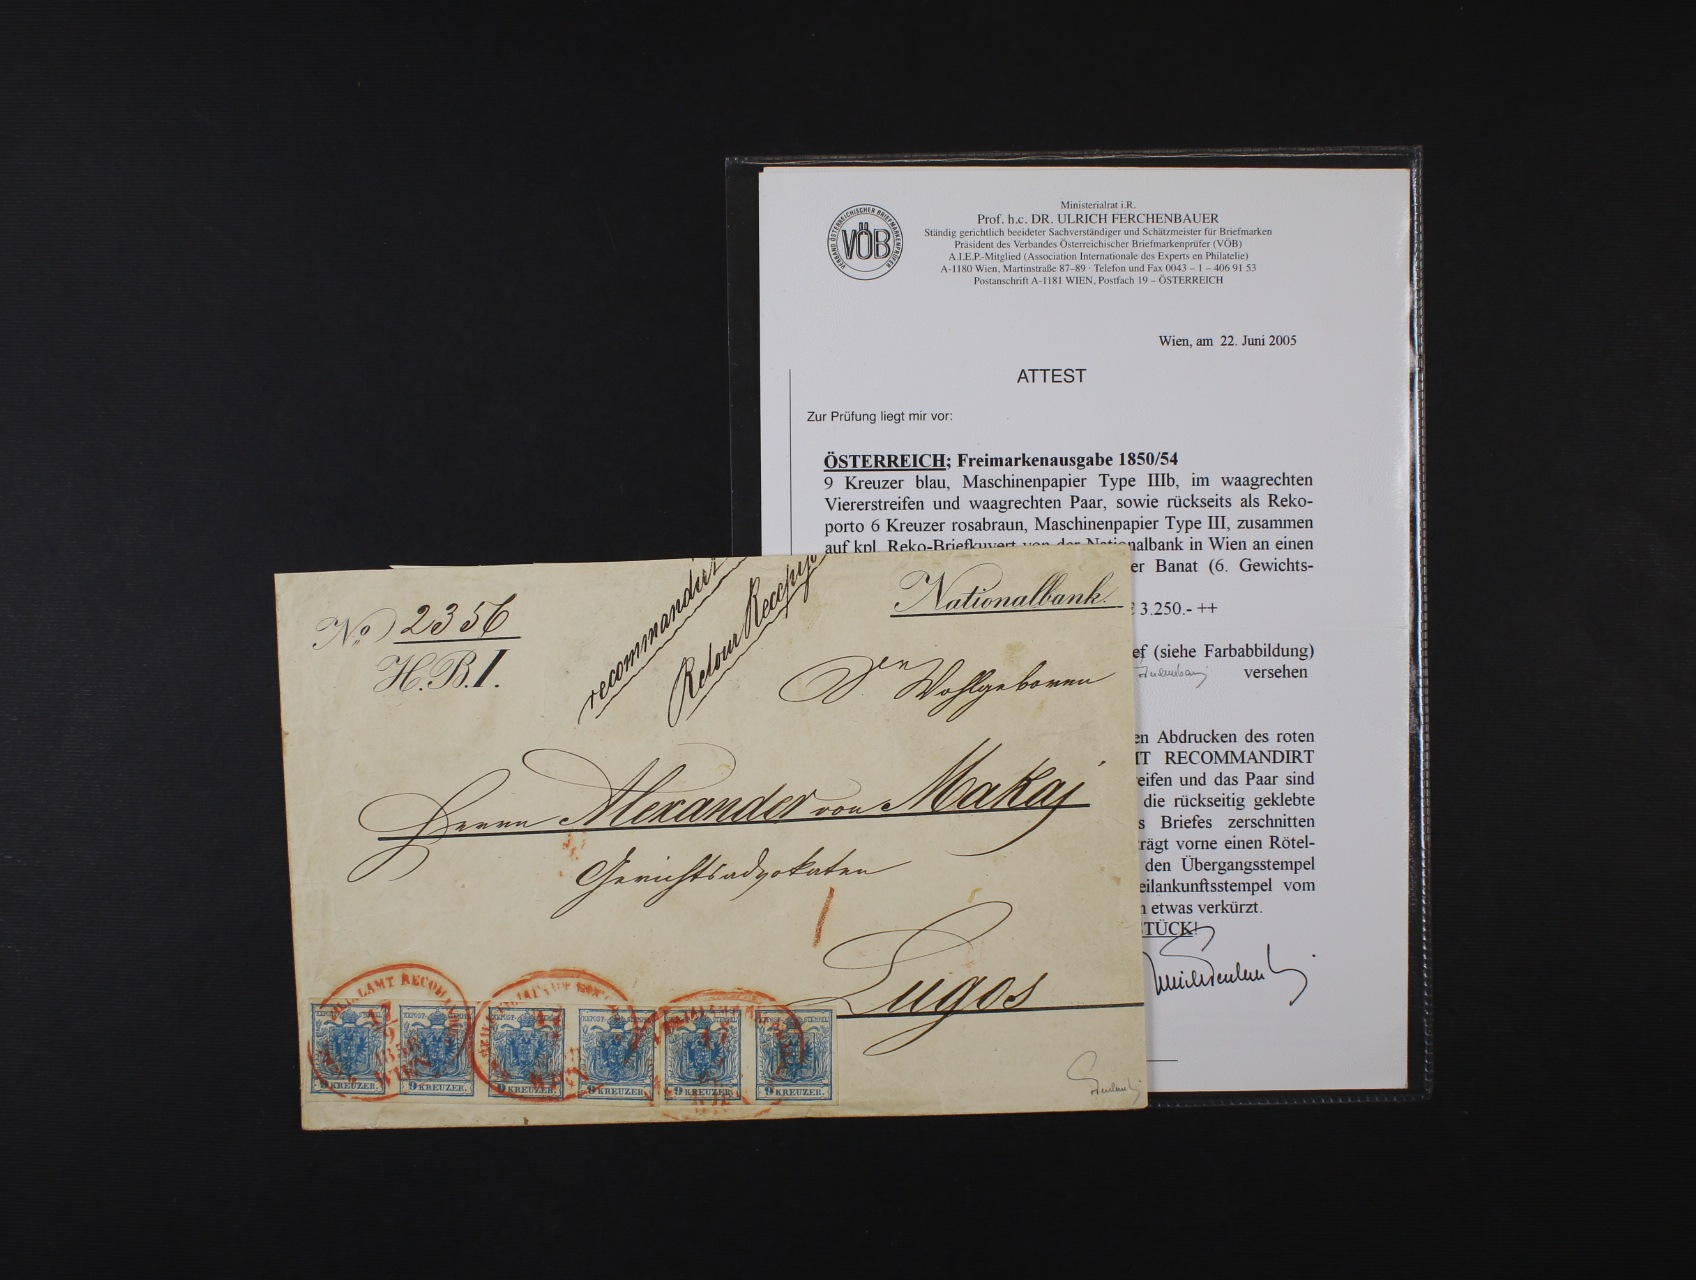 VERBAND ÖSTERREICHISCHER BRIEFMARKENPRÜFER
VÖB
Ministerialrat i.R.
Prof. h.c. DR. ULRICH FERCHENBAUER
Ständig gerichtlich beeideter Sachverständiger und Schätzmeister für Briefmarken
Präsident des Verbandes Österreichischer Briefmarkenprüfer (VÖB)
A.I.E.P.-Mitglied (Association Internationale des Experts en Philatelie)
A-1180 Wien, Martinstraße 87–89 · Telefon und Fax 0043 – 1 – 406 91 53
Postanschrift A-1181 WIEN, Postfach 19 – ÖSTERREICH
Wien, am 22. Juni 2005
ATTEST
Zur Prüfung liegt mir vor:
ÖSTERREICH; Freimarkenausgabe 1850/54
9 Kreuzer blau, Maschinenpapier Type IIIb, im waagrechten
Viererstreifen und waagrechten Paar, sowie rückseits als Reko-
porto 6 Kreuzer rosabraun, Maschinenpapier Type III, zusammen
auf kpl. Reko-Briefkuvert von der Nationalbank in Wien an einen
er Banat (6. Gewichts-
3.250.- ++
ef (siehe Farbabbildung)
versehen
en Abdrucken des roten
IT RECOMMANDIRT
eifen und das Paar sind
die rückseitig geklebte
s Briefes zerschnitten
trägt vorne einen Rötel-
den Übergangsstempel
eilankunftsstempel vom
n etwas verkürzt.
STÜCK!
No 2356
H.B.I.
recommandirt
Retour Recepisse
Nationalbank.
Sr Wohlgeboren
Herrn Alexander von Makaj
Gerichtsadvokaten
Lugos
FILIALAMT RECOM
17
9
1856
WIEN
KK POST-STEMPEL
9 KREUZER.
9 KREUZER.
9 KREUZER.
9 KREUZER.
9 KREUZER.
9 KREUZER.